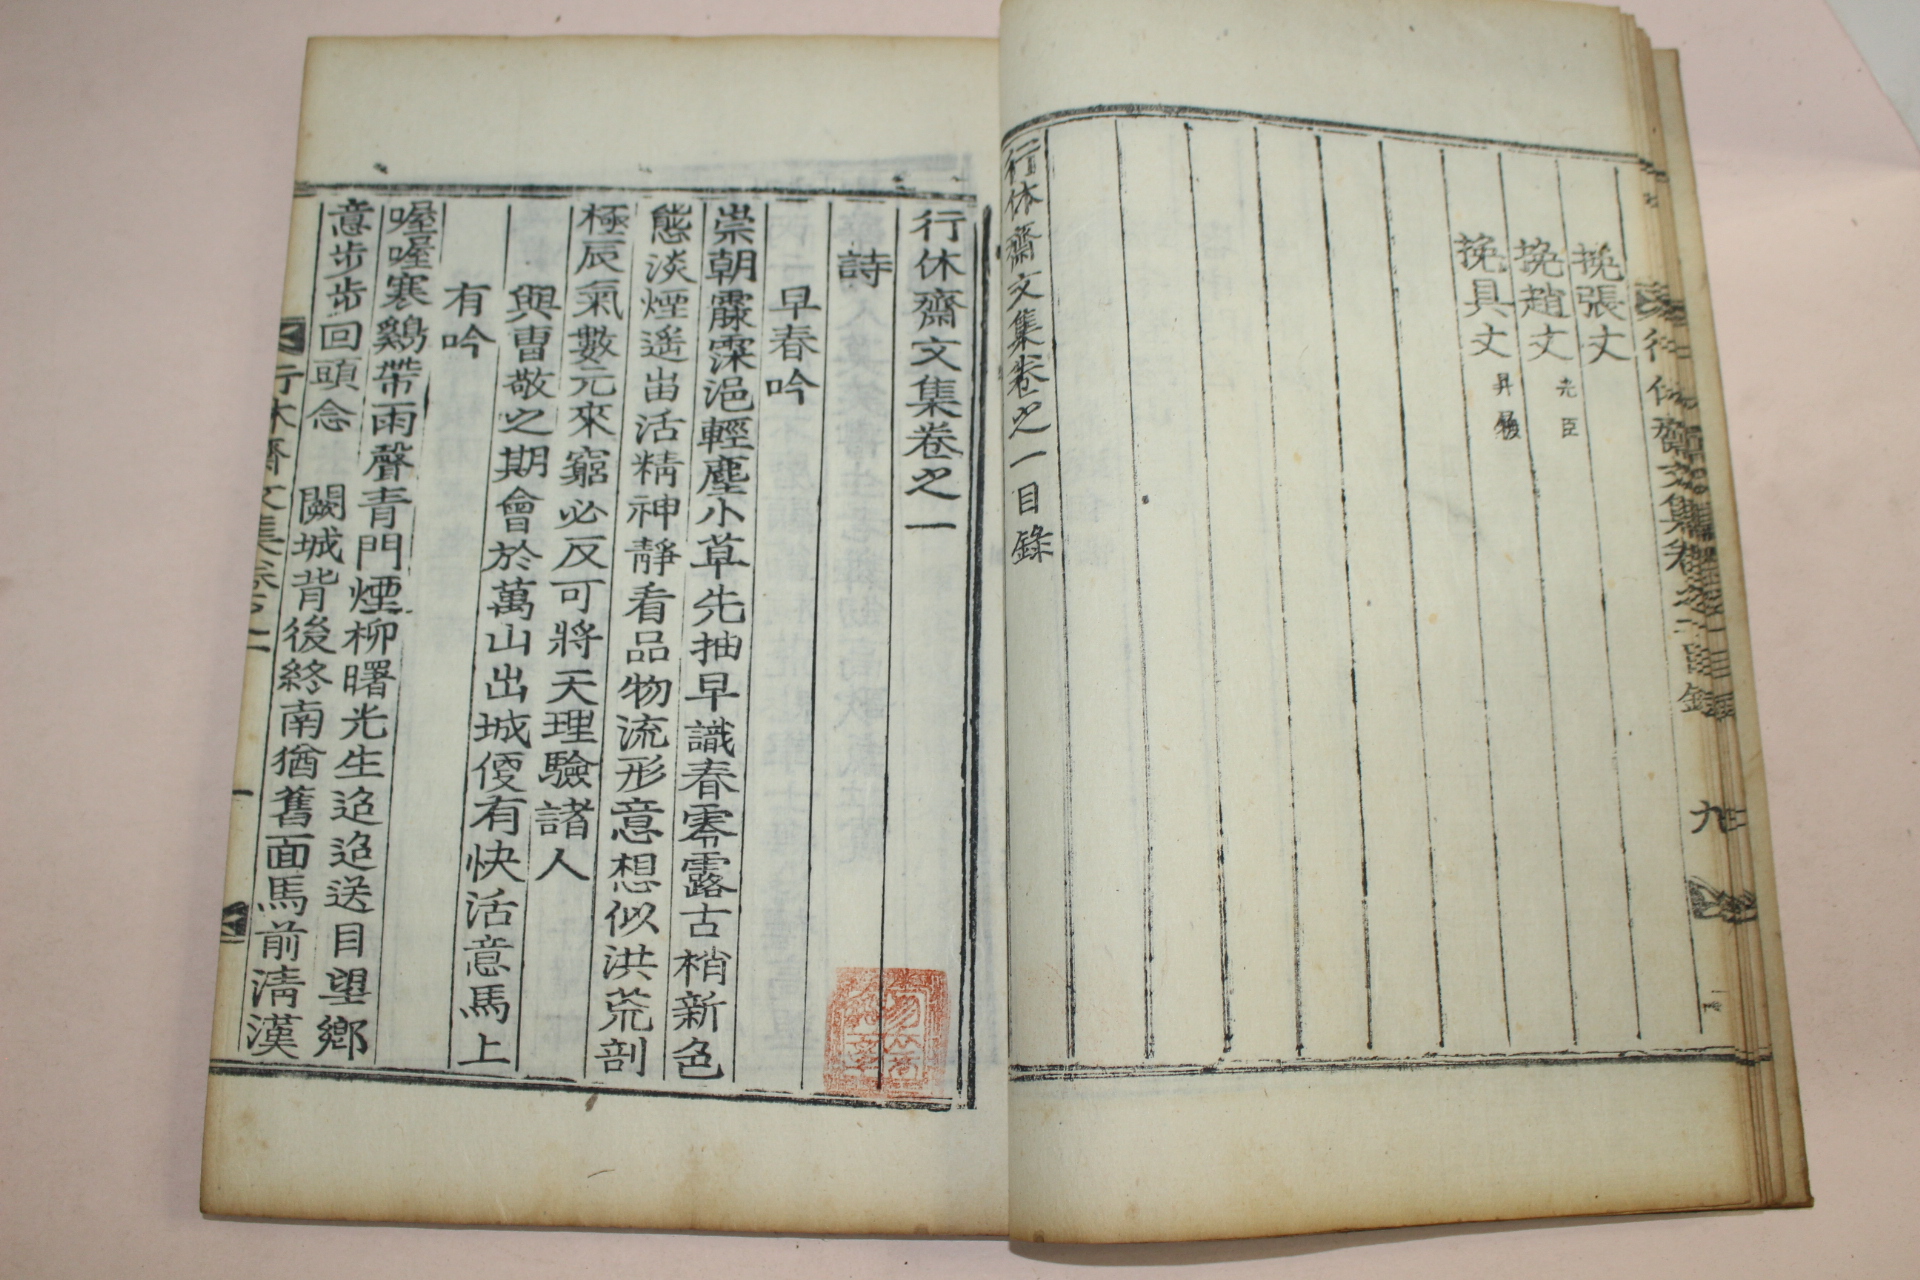 挽張丈
挽趙文 光臣
挽具文 昇
行休齋文集卷之一目錄
行休齋文集卷之一
詩
早春吟
崇朝霢霂浥輕塵小草先抽早識春零露古梢新色
態淡煙遥岀活精神靜看品物流形意想似洪荒剖
極辰氣數元來窮必反可將天理驗諸人
與曺敬之期會於萬山出城便有快活意馬上
有吟
喔喔寒鷄帶雨聲青門煙柳曙光生迢迢送目望鄉
意步步回頭念 闕城背後終南猶舊面馬前淸漢
行休齋文集卷之一
一
行休齋文集卷之一目錄
九